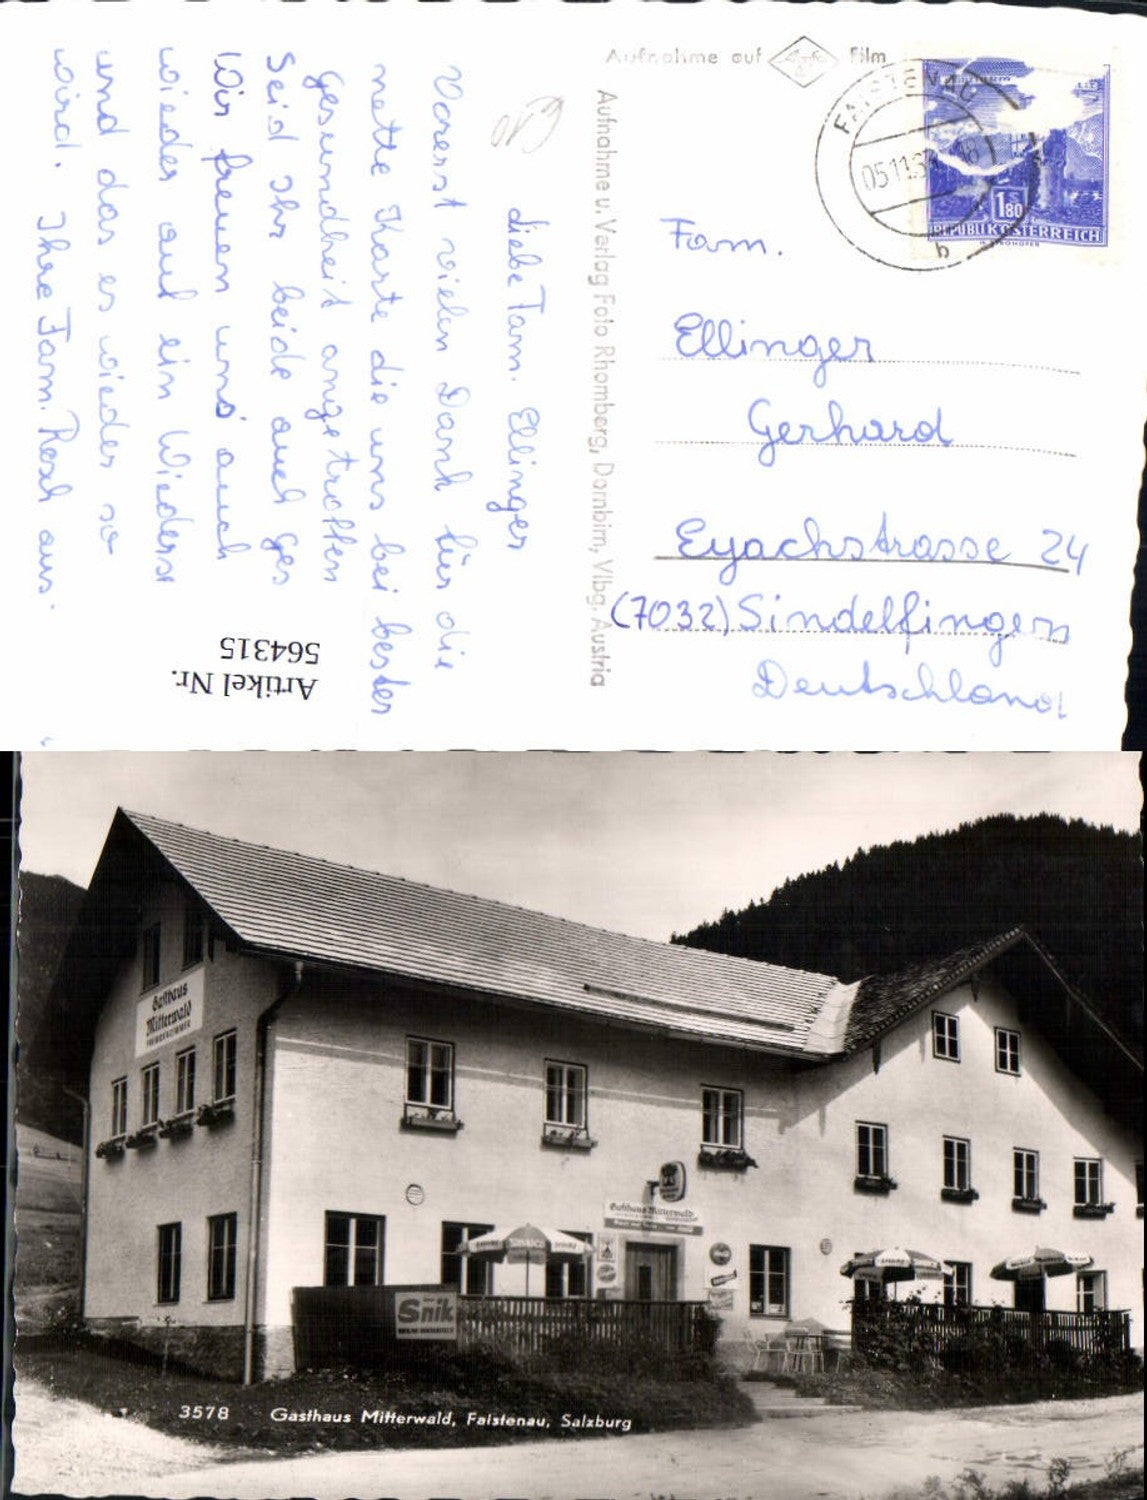 Aufnahme auf Agfa Film
FAISTENAU
05.11.6
b
1.80
S
REPUBLIK ÖSTERREICH
Aufnahme u. Verlag Foto Rhomberg, Dornbirn, Vlbg. Austria
Fam.
Ellinger
Gerhard
Eyachstrasse 24
(7032) Sindelfingen
Deutschland
€10
Liebe Fam. Ellinger
Vorerst vielen Dank für die
nette Karte die uns bei bester
Gesundheit angetroffen
Seid Ihr beide auch ges
Wir freuen uns auch
wieder auf ein Wieders
und das es wieder so
wird. Ihre Fam. Resch aus.
Artikel Nr.
564315
Gasthaus
Mitterwald
FREMDENZIMMER
Gasthaus Mitterwald
SINALCO
Snik
3578 Gasthaus Mitterwald, Faistenau, Salzburg